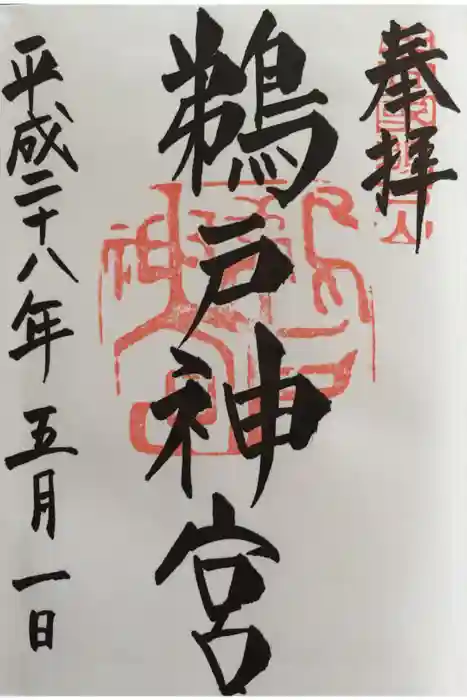 奉拝
鵜戸神宮
平成二十八年 五月一日